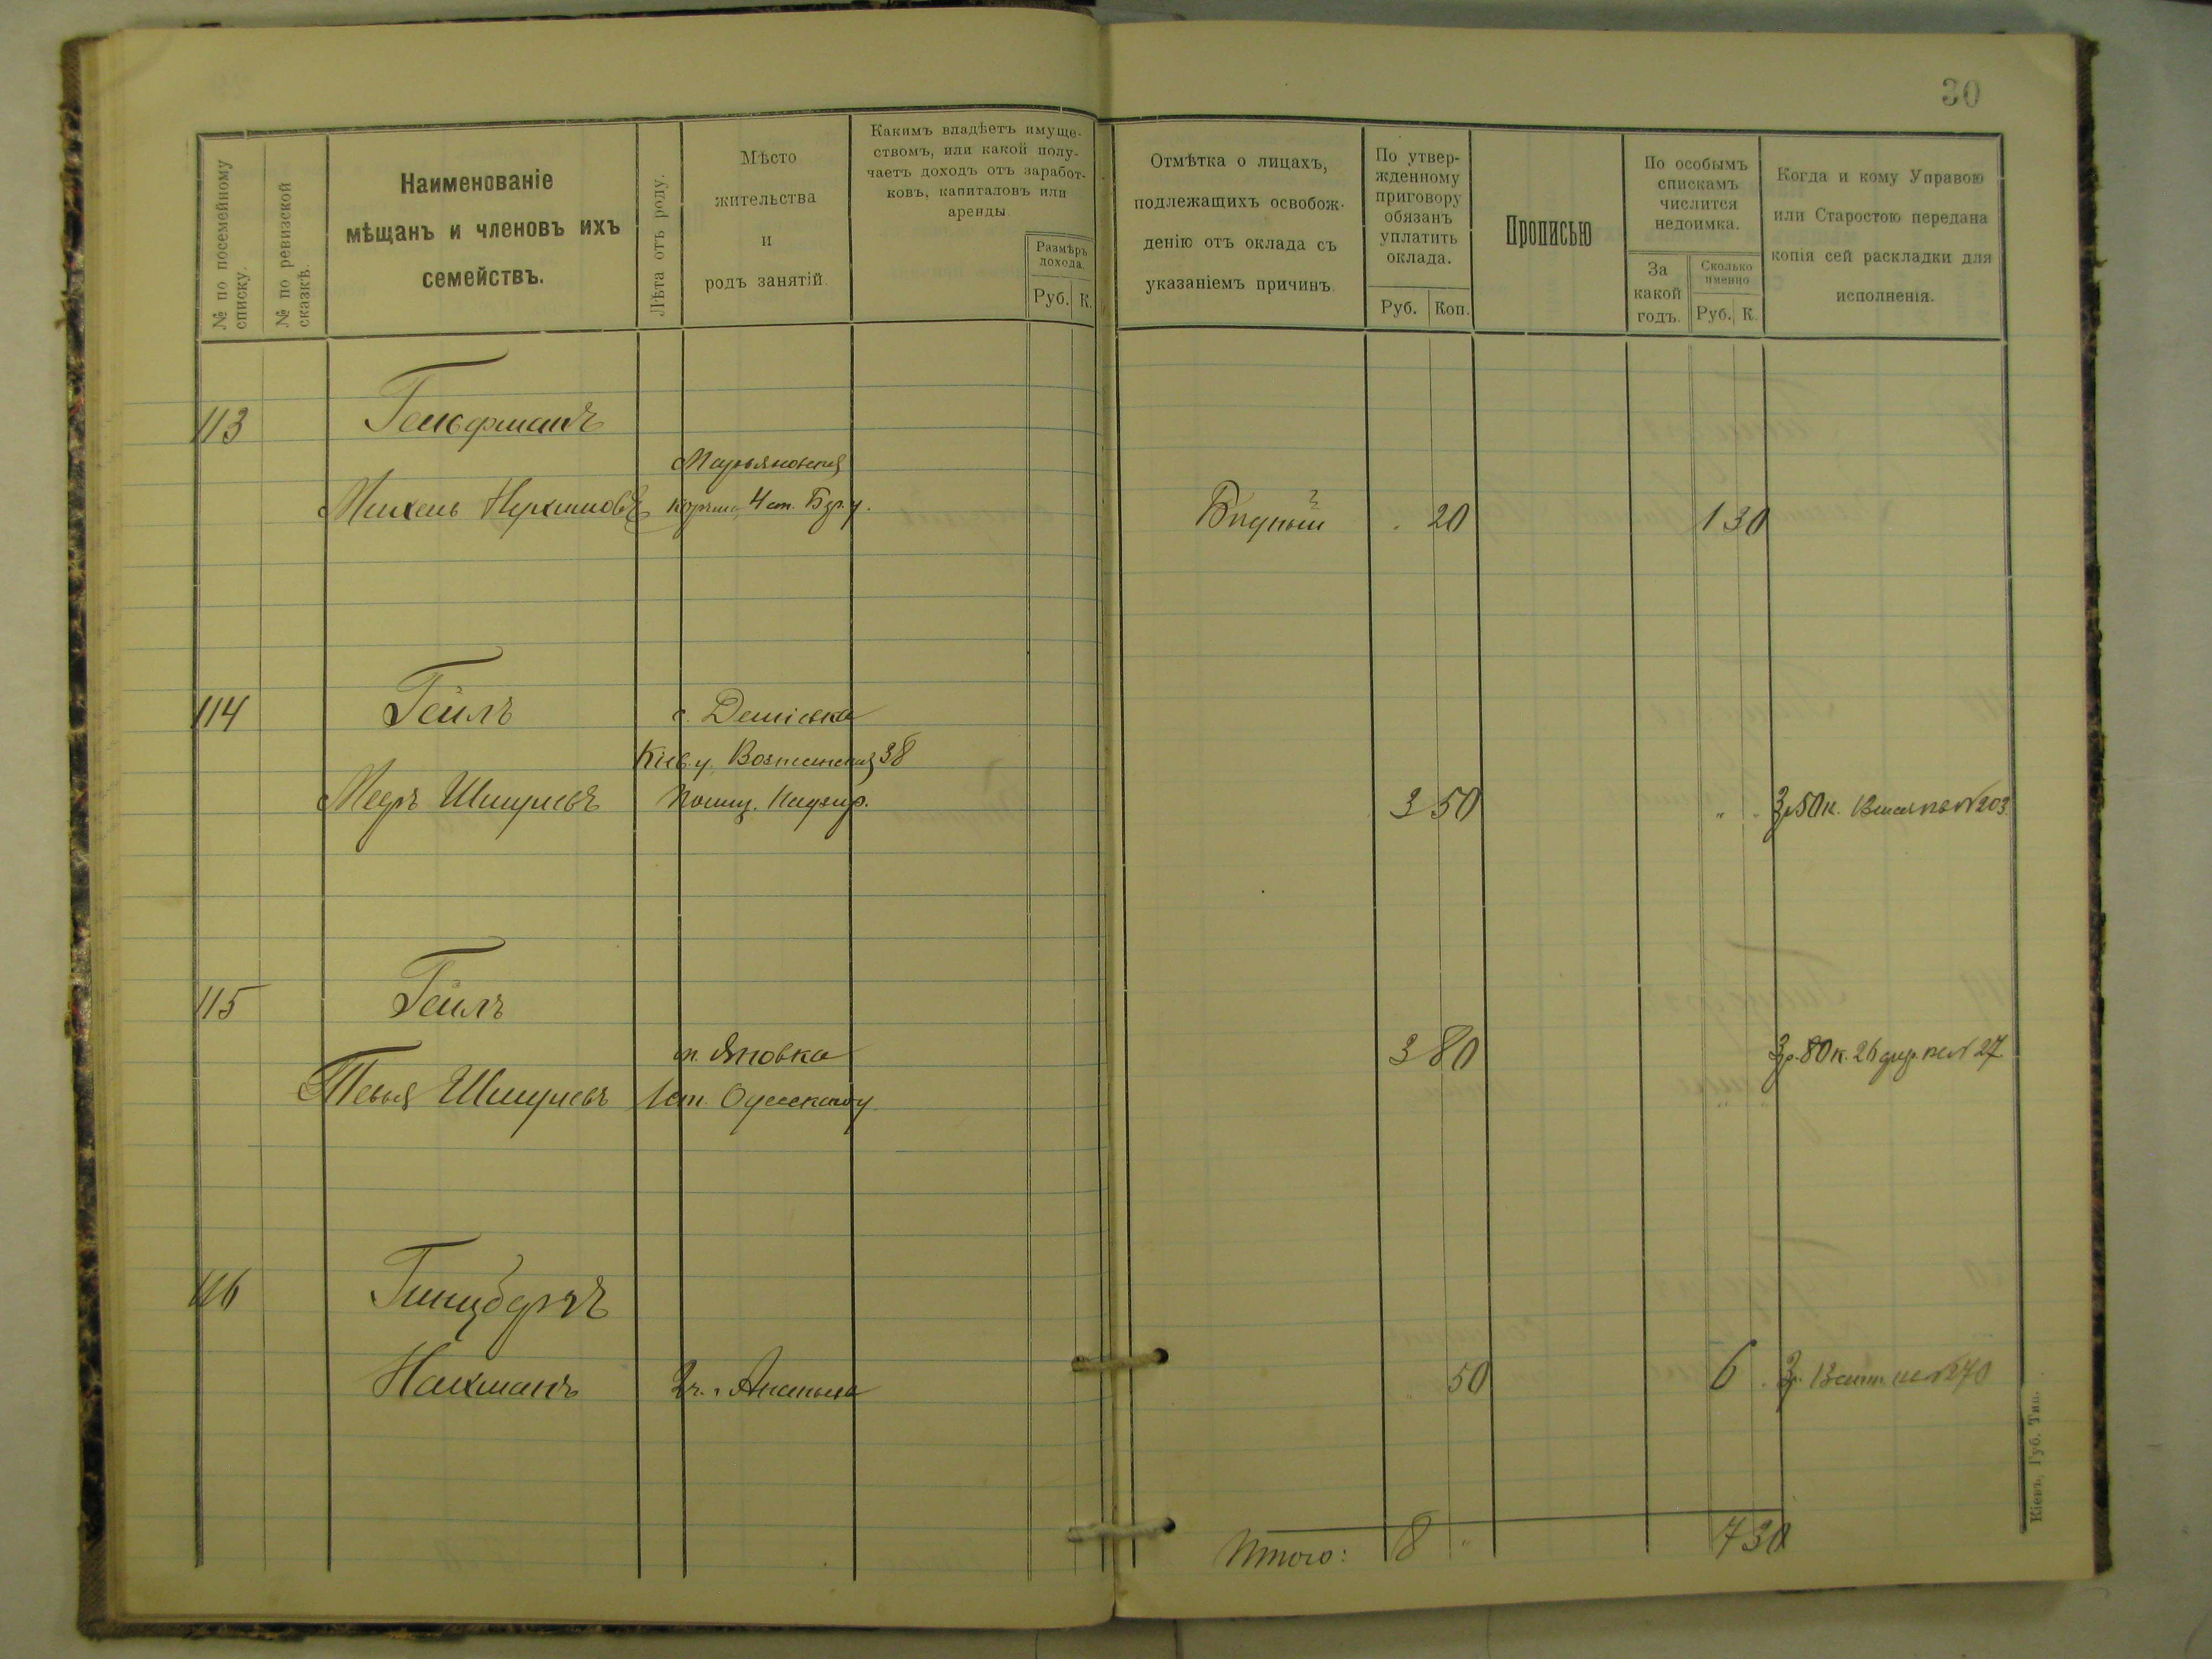 30
№ по посемейному списку.
№ по ревизской сказкѣ.
Наименованіе
мѣщанъ и членовъ ихъ
семействъ.
Лѣта отъ роду.
Мѣсто
жительства
и
родъ занятій.
Какимъ владѣетъ имуще-
ствомъ, или какой полу-
чаетъ доходъ отъ заработ-
ковъ, капиталовъ или
аренды.
Размѣръ
дохода.
Руб. К.
Отмѣтка о лицахъ,
подлежащихъ освобож-
денію отъ оклада съ
указаніемъ причинъ.
По утвер-
жденному
приговору
обязанъ
уплатить
оклада.
Руб. Коп.
Прописью
По особымъ
спискамъ
числится
недоимка.
За
какой
годъ.
Сколько
именно
Руб. К.
Когда и кому Управою
или Старостою передана
копія сей раскладки для
исполненія.
113 Гельфманъ
Марьяновская
4 ст.
Бѣдный 20 1 30
114 Гейлъ с. Деміевка
Кіев. у. 38
Меръ Шмулевъ 3 50 3р 50 к. № 203.
115 Гейлъ
м. Яновка 3 80 3р. 80 к. 26 № 27.
Тевья Шмулевъ 1 ст. Одесскаго у
116 Гинцбергъ
Нахманъ 50 6 3р. № 270
Итого: 8 " 7 30
Кіевъ, Губ. Тип.